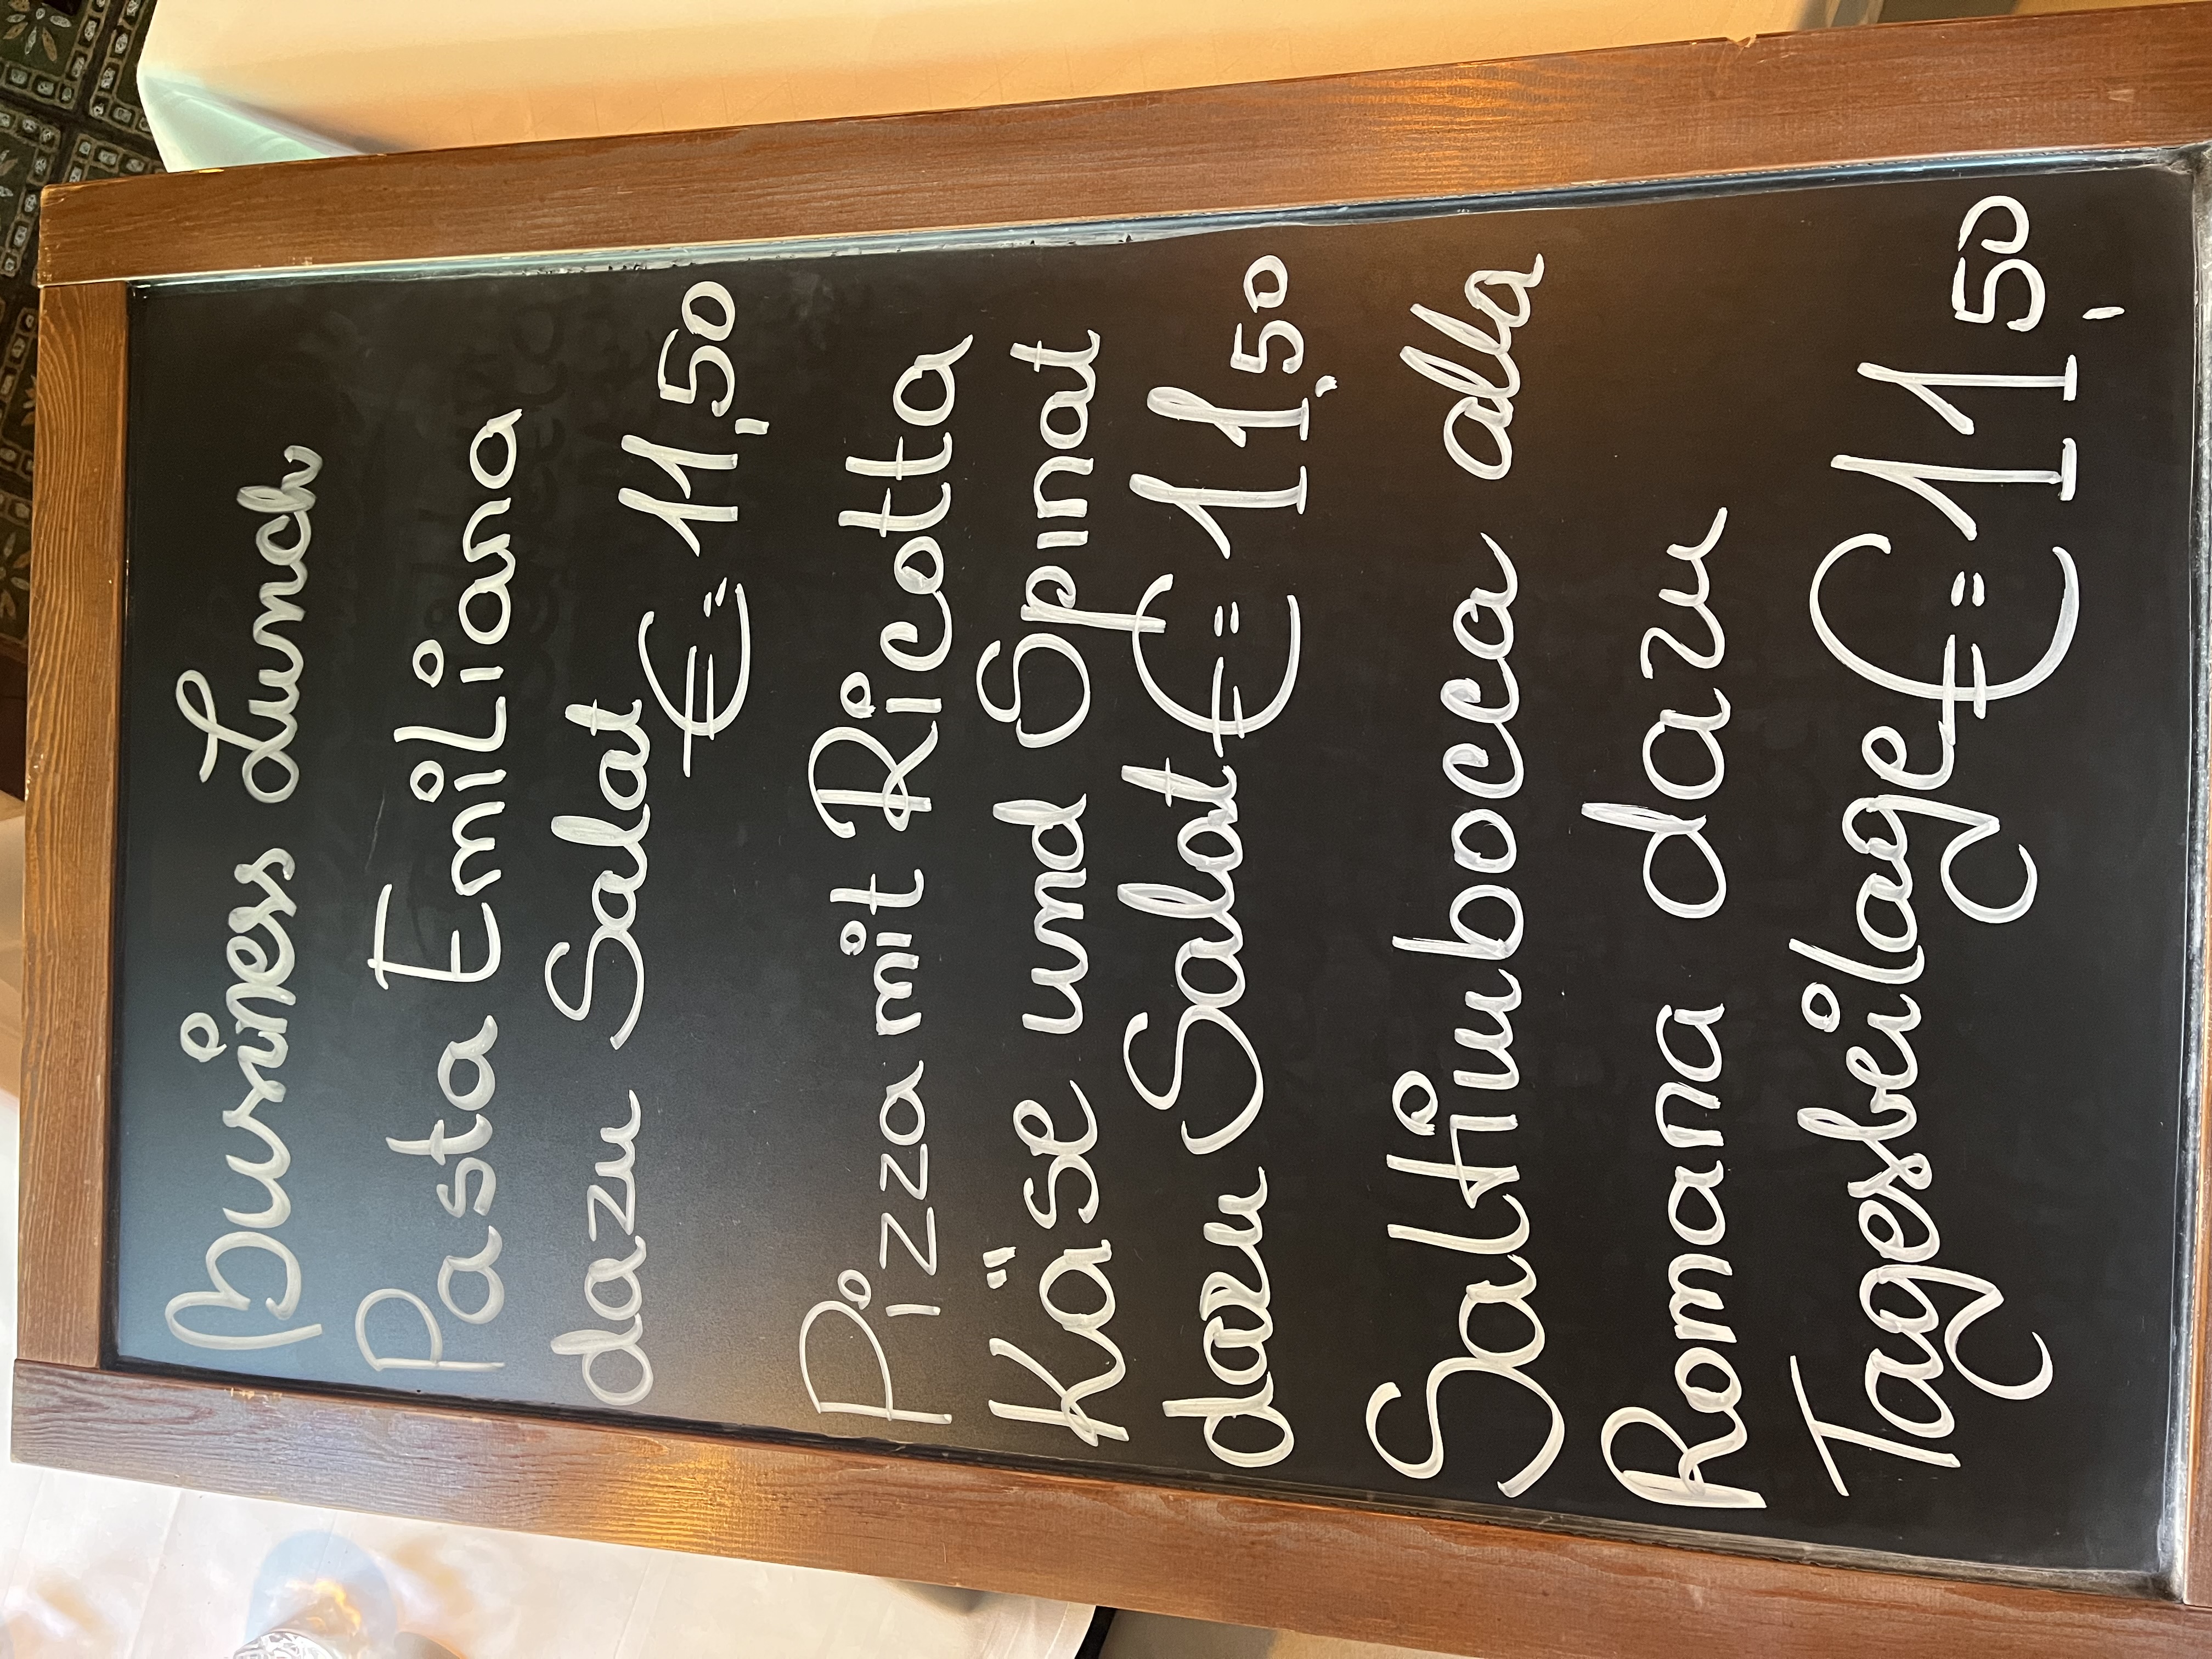 Business Lunch
Pasta Emiliana
dazu Salat
€= 11,50
Pizza mit Ricotta
Käse und Spinat
dazu Salat €= 11,50
Saltimbocca alla
Romana dazu
Tagesbeilage €= 11,50